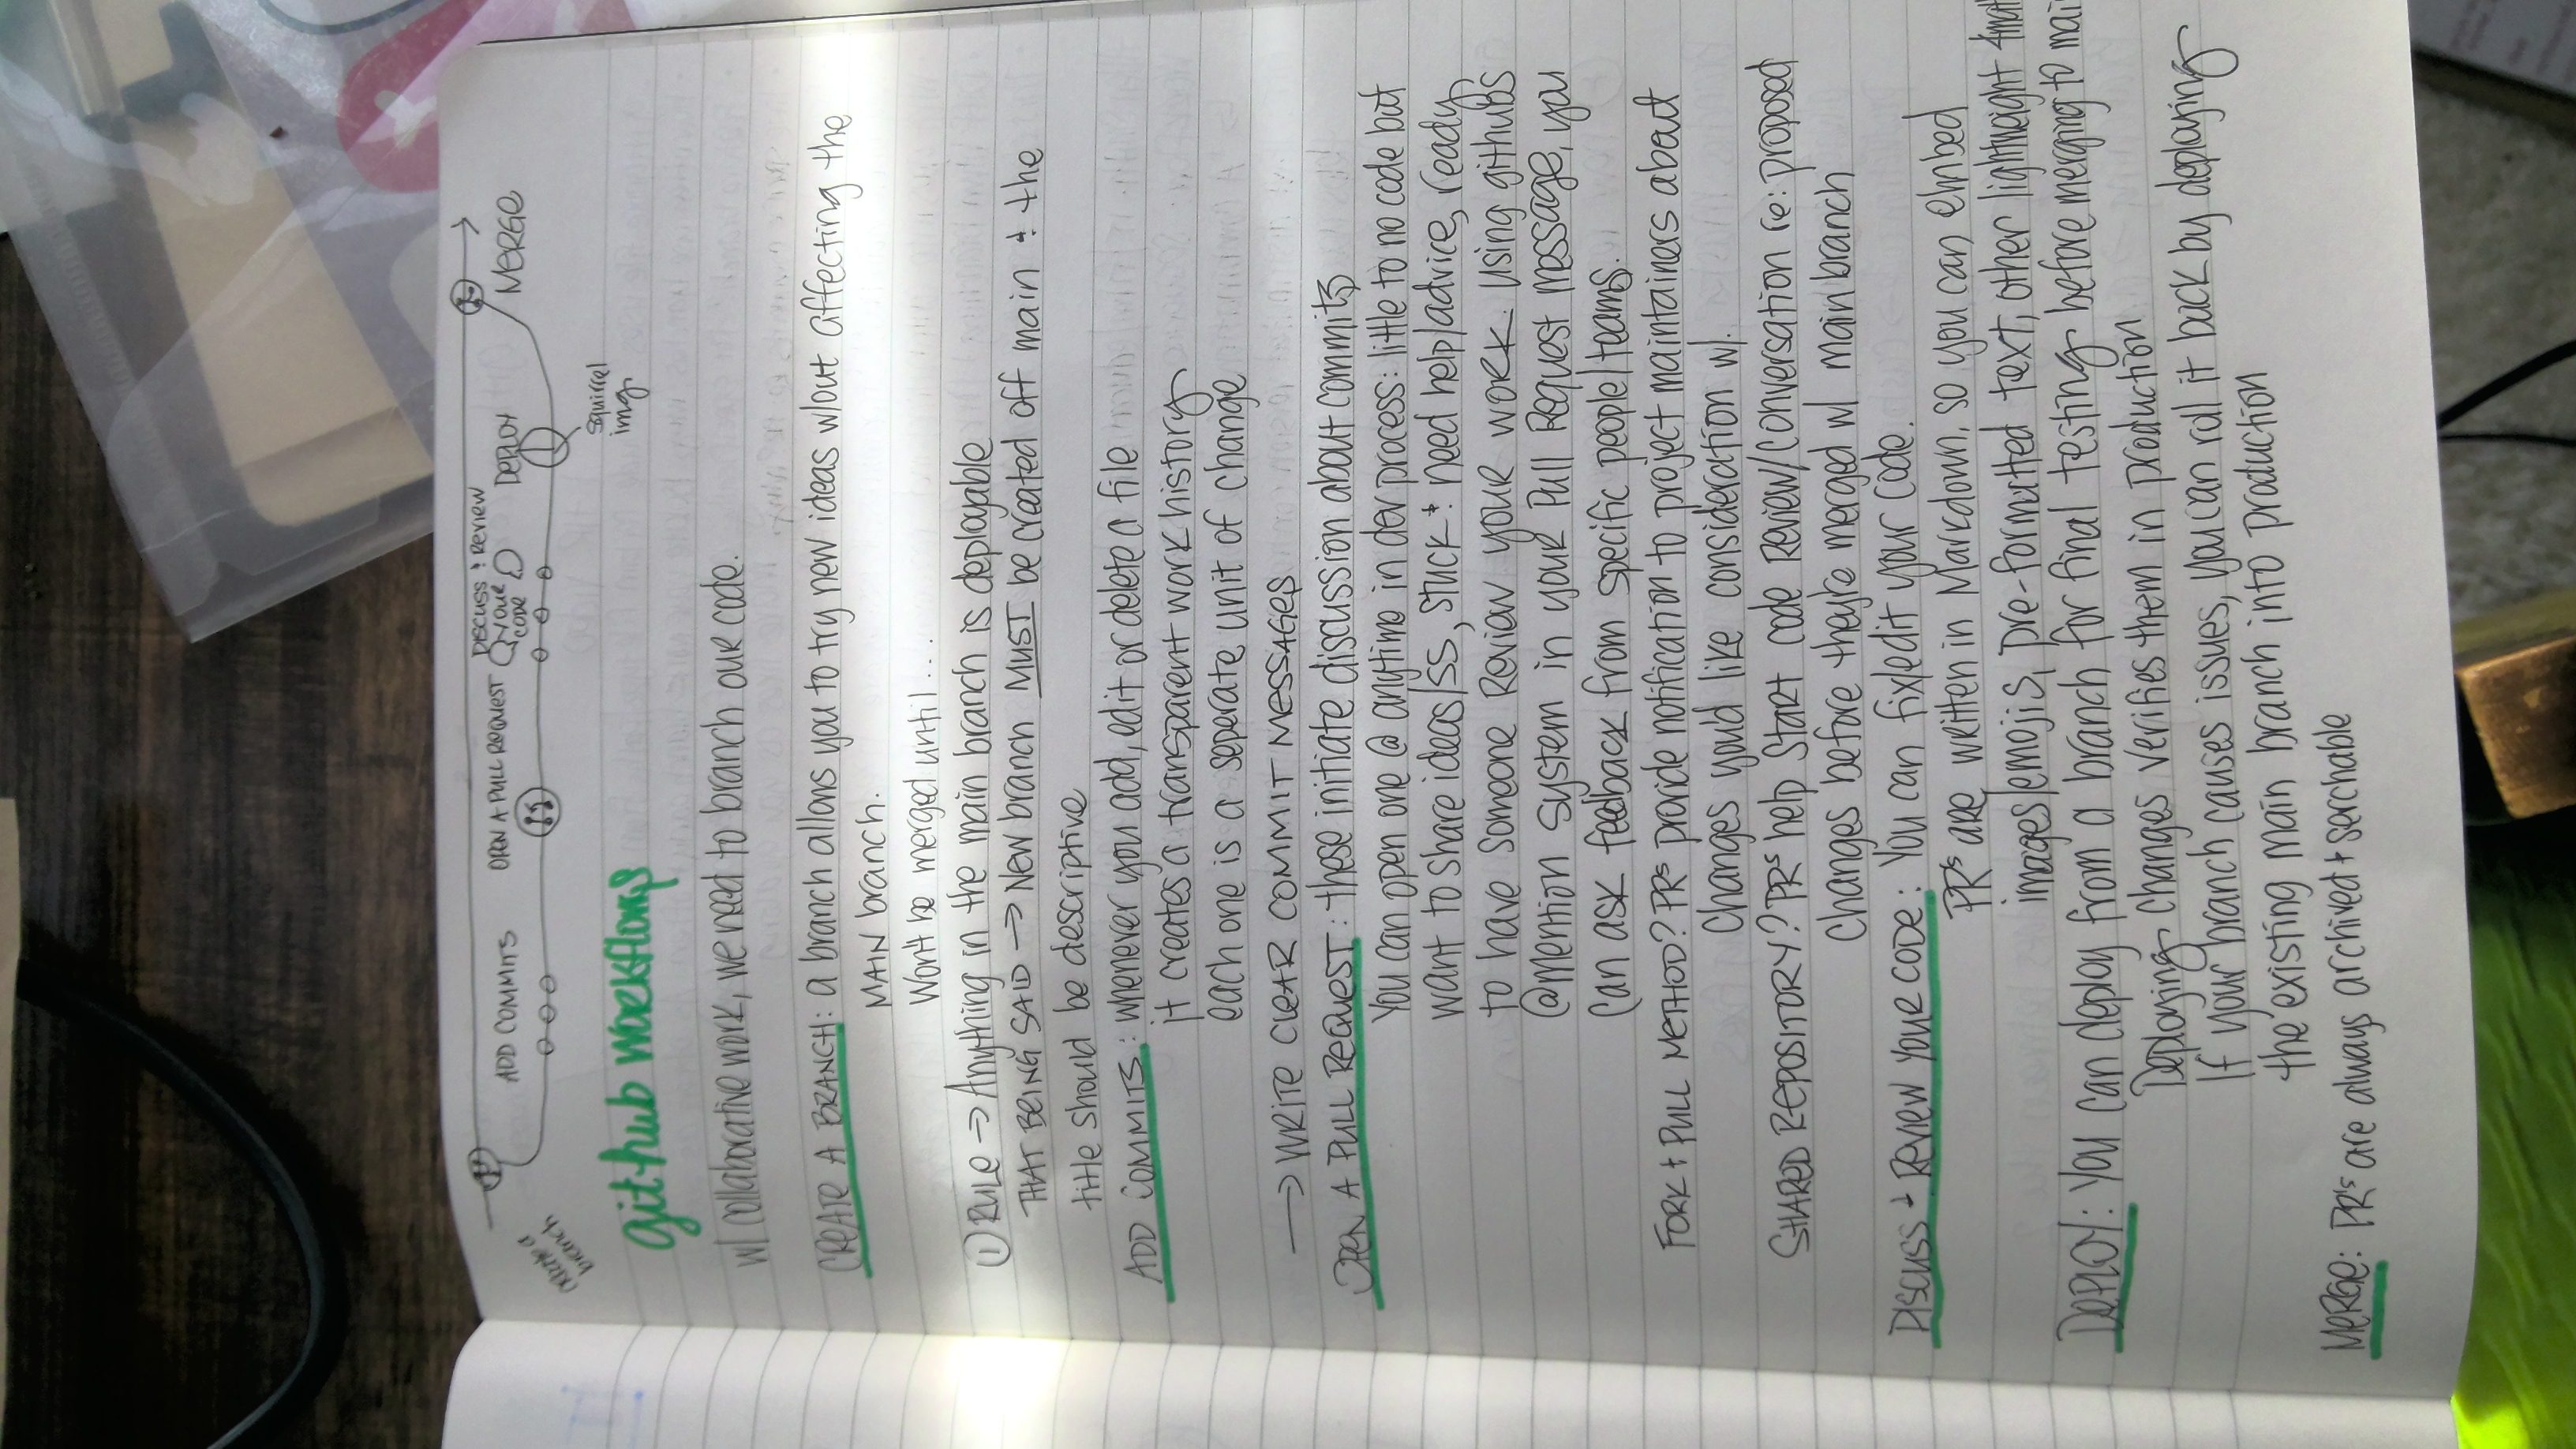 create a
branch
ADD COMMITS
OPEN A PULL REQUEST
DISCUSS + REVIEW
YOUR
CODE
DEPLOY
MERGE
squirrel
img.
github workflows
w/ collaborative work, we need to branch our code.
CREATE A BRANCH: a branch allows you to try new ideas w/out affecting the
MAIN branch.
Won't be merged until...
① RULE → Anything in the main branch is deployable
THAT BEING SAID → New branch MUST be created off main + the
title should be descriptive
ADD COMMITS: whenever you add, edit or delete a file
it creates a transparent work history
each one is a seperate unit of change
→ WRITE CLEAR COMMIT MESSAGES
OPEN A PULL REQUEST: these initiate discussion about commits
You can open one @ anytime in dev process: little to no code but
want to share ideas/ss, stuck + need help/advice, ready
to have someone Review your work. Using githubs
@mention system in your Pull Request message, you
can ask feedback from specific people/teams.
FORK + PULL METHOD? PRs provide notification to project maintainers about
changes you'd like consideration w/.
SHARED REPOSITORY? PRs help start code Review/conversation re: proposed
changes before they're merged w/ main branch
DISCUSS + REVIEW YOUR CODE: You can fix/edit your code.
PR's are written in Markdown, so you can embed
images/emojis, pre-formatted text, other lightweight
DEPLOY: You can deploy from a branch for final testing before merging to mai
Deploying changes verifies them in production
If your branch causes issues, you can roll it back by deploying
the existing main branch into production
MERGE: PR's are always archived + serchable